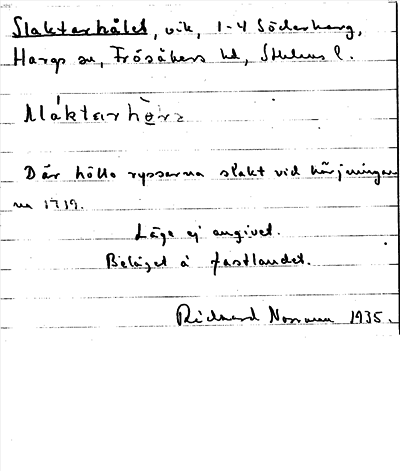 Slaktarhålet, vik, 1-4 Söderharg,
Hargs sn, Frösåkers hd, Sthlms l.
Där höllo ryssarna slakt vid härjningar
na 1719.
Läge ej angivet.
Beläget å fastlandet.
Richard 1935.